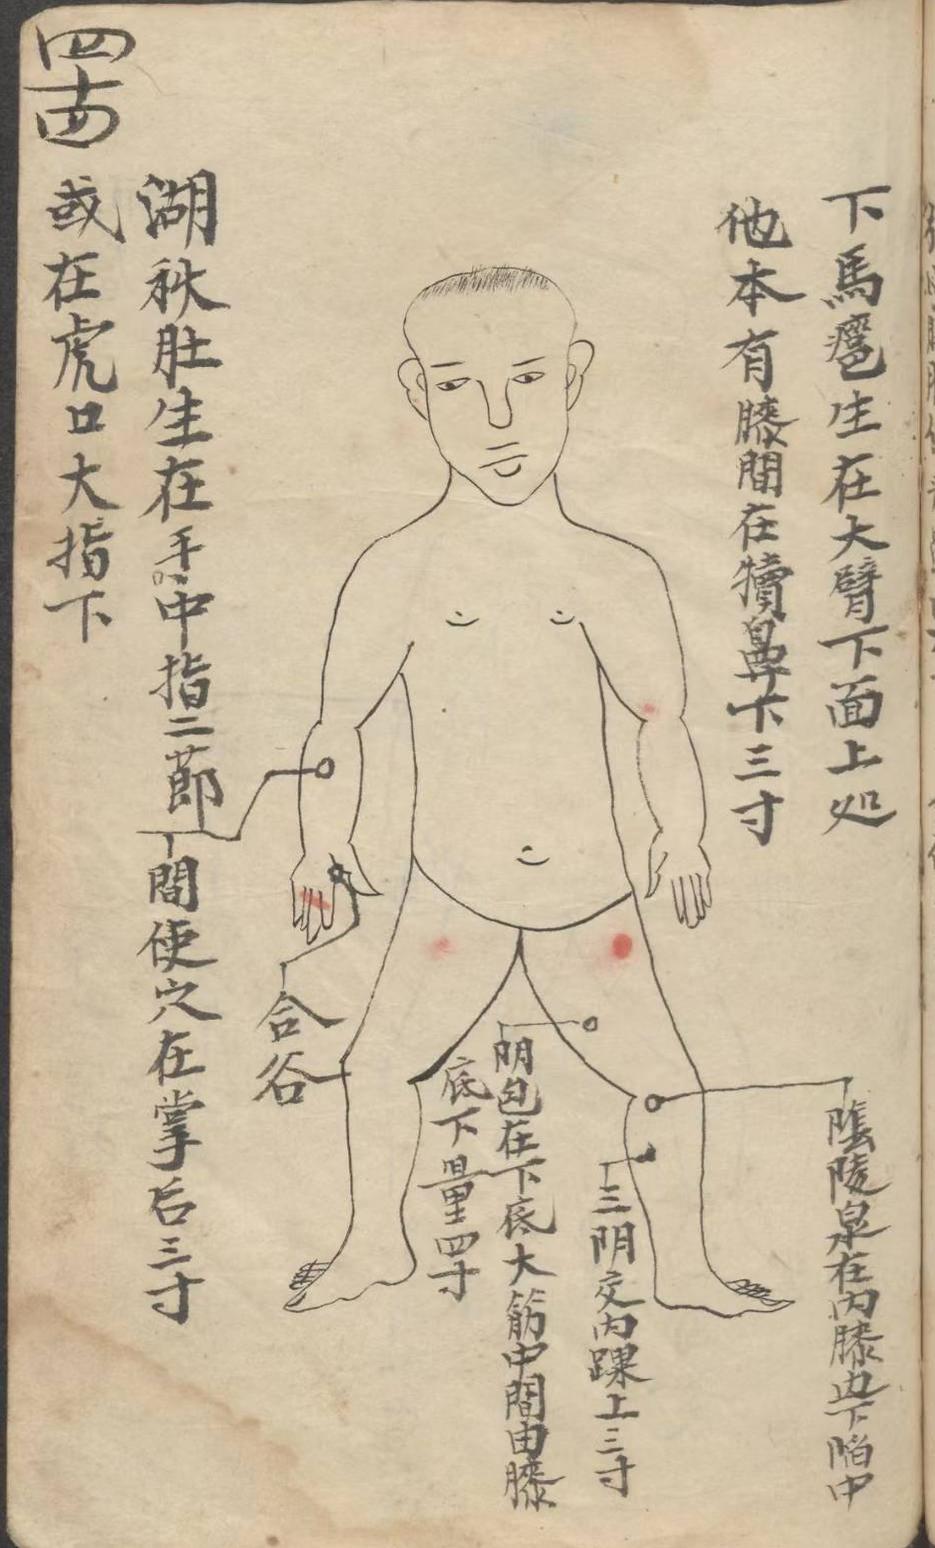 下馬癰生在大臂下面上处
他本有膝間在犢鼻下三寸
陰陵泉在内膝边下陷中
三阴交内踝上三寸
阴包在下底大筋中間由膝
底下量四寸
合谷
湖秋肚生在手中指二節
間使穴在掌后三寸
或在虎口大指下
四十四